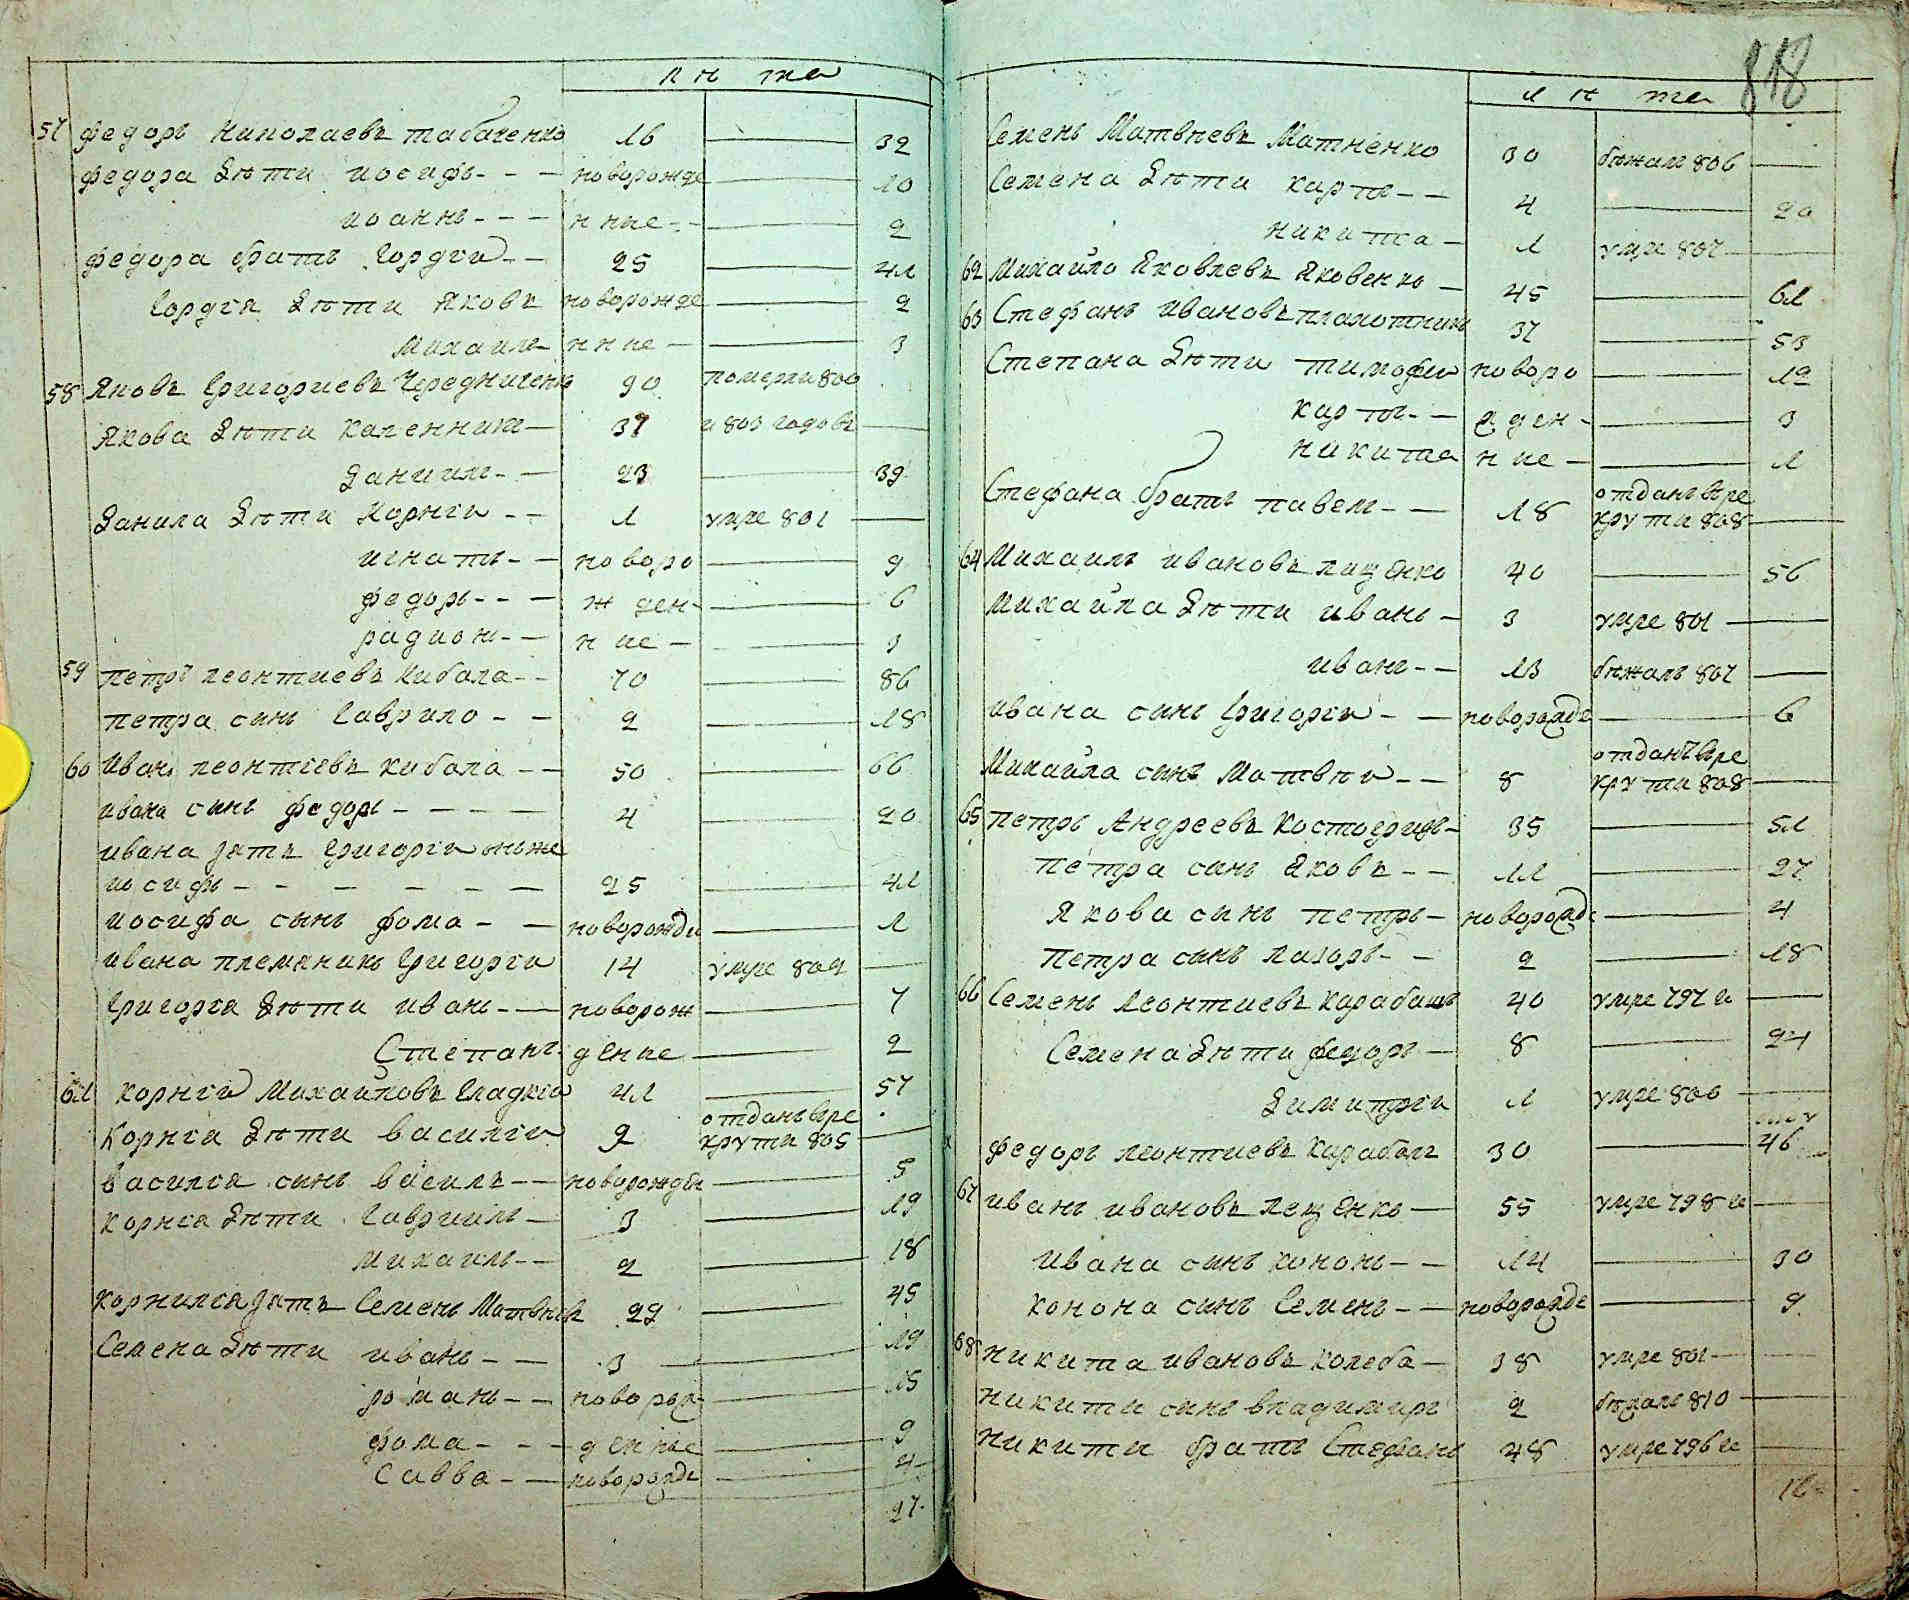 лѣта
57 Федоръ Николаевъ табаченко 16 — 32
Федора Дѣти иосифъ - - - новорожде — 10
иоаннъ - - - нные - - — 2
Федора братъ Гордѣй - - 25 — 41
Гордѣя Дѣти Яковъ новорожде — 2
Михаилъ - нные - — 3
58 Яковъ Григориевъ Чередниченко 90 померли 800
Якова Дѣти Каленникъ — 37 и 803 годовъ —
Даниилъ - - 23 — 39
Данила Дѣти Корнѣй - - 1 умре 801 —
игнатъ - - новоро — 9
федоръ - - - жден - — 6
радионъ - - ние - — 3
59 петръ леонтиевъ Кибала - - 70 — 86
петра сынъ Гаврило - - 2 — 18
60 Иванъ леонтиевъ кибала - - 50 — 66
ивана сынъ федоръ - - - - - 4 — 20
ивана зять Григорѣй онъже
иосифъ - - - - - - 25 — 41
иосифа сынъ фома - - новорожде — 1
ивана племяникъ Григорѣй 14 умре 809 —
Григорѣя Дѣти иванъ - - новорож — 7
Степанъ - дение — 2
61 корнѣй Михайловъ Гладкѣй 41 — 57
Корнѣя Дѣти василѣй 9 отданъ въре крути 805 —
василѣя сынъ василь - - новорожде — 5
корнѣя Дѣти Гавриилъ - 3 — 19
михаилъ - - 2 — 18
корнилѣя зять Семенъ Матвѣевъ 29 — 45
Семена Дѣти иванъ - - 3 — 19
романъ - - новорож — 15
фома - - - дение — 9
Савва - - новорожде — 4
27

818
лѣта
Семенъ Матвѣевъ Матненко 30 бѣжалъ 806 —
Семена Дѣти карпъ - - 4 — 20
никита - 1 умре 807 —
62 Михайло Яковлевъ Яковенко - 45 — 61
63 Стефанъ ивановъ плахотникъ 37 — 53
Степана Дѣти тимофей новоро — 12
карпъ - - жден - — 3
никита ние - — 1
Стефана братъ павелъ - - 18 отданъ въре крути 808 —
64 Михаилъ ивановъ лищенко 40 — 56
михайла Дѣти иванъ - 3 умре 801 —
иванъ - - 13 бѣжалъ 807 —
ивана сынъ Григорѣй - - новорожде — 6
Михайла сынъ Матвѣй - - 8 отданъ въре крути 808 —
65 петръ Андреевъ Костогризъ - 35 — 51
петра сынъ Яковъ - - 11 — 27
Якова сынъ петръ - новорожде — 4
Петра сынъ лазоръ - - 2 — 18
66 Семенъ Леонтиевъ Карабашъ 40 умре 797 го —
Семена Дѣти федоръ - 8 — 24
Димитрѣй 1 умре 800 —
федоръ леонтиевъ Карабашъ 30 — 46
67 иванъ ивановъ лещенко — 55 умре 798 го —
ивана сынъ кононъ - - 14 — 30
конона сынъ Семенъ - - новорожде — 9
68 никита ивановъ колеба - 38 умре 801 —
никити сынъ владимиръ 2 бѣжалъ 810 —
никити братъ Стефанъ 48 умре 796 го —
16